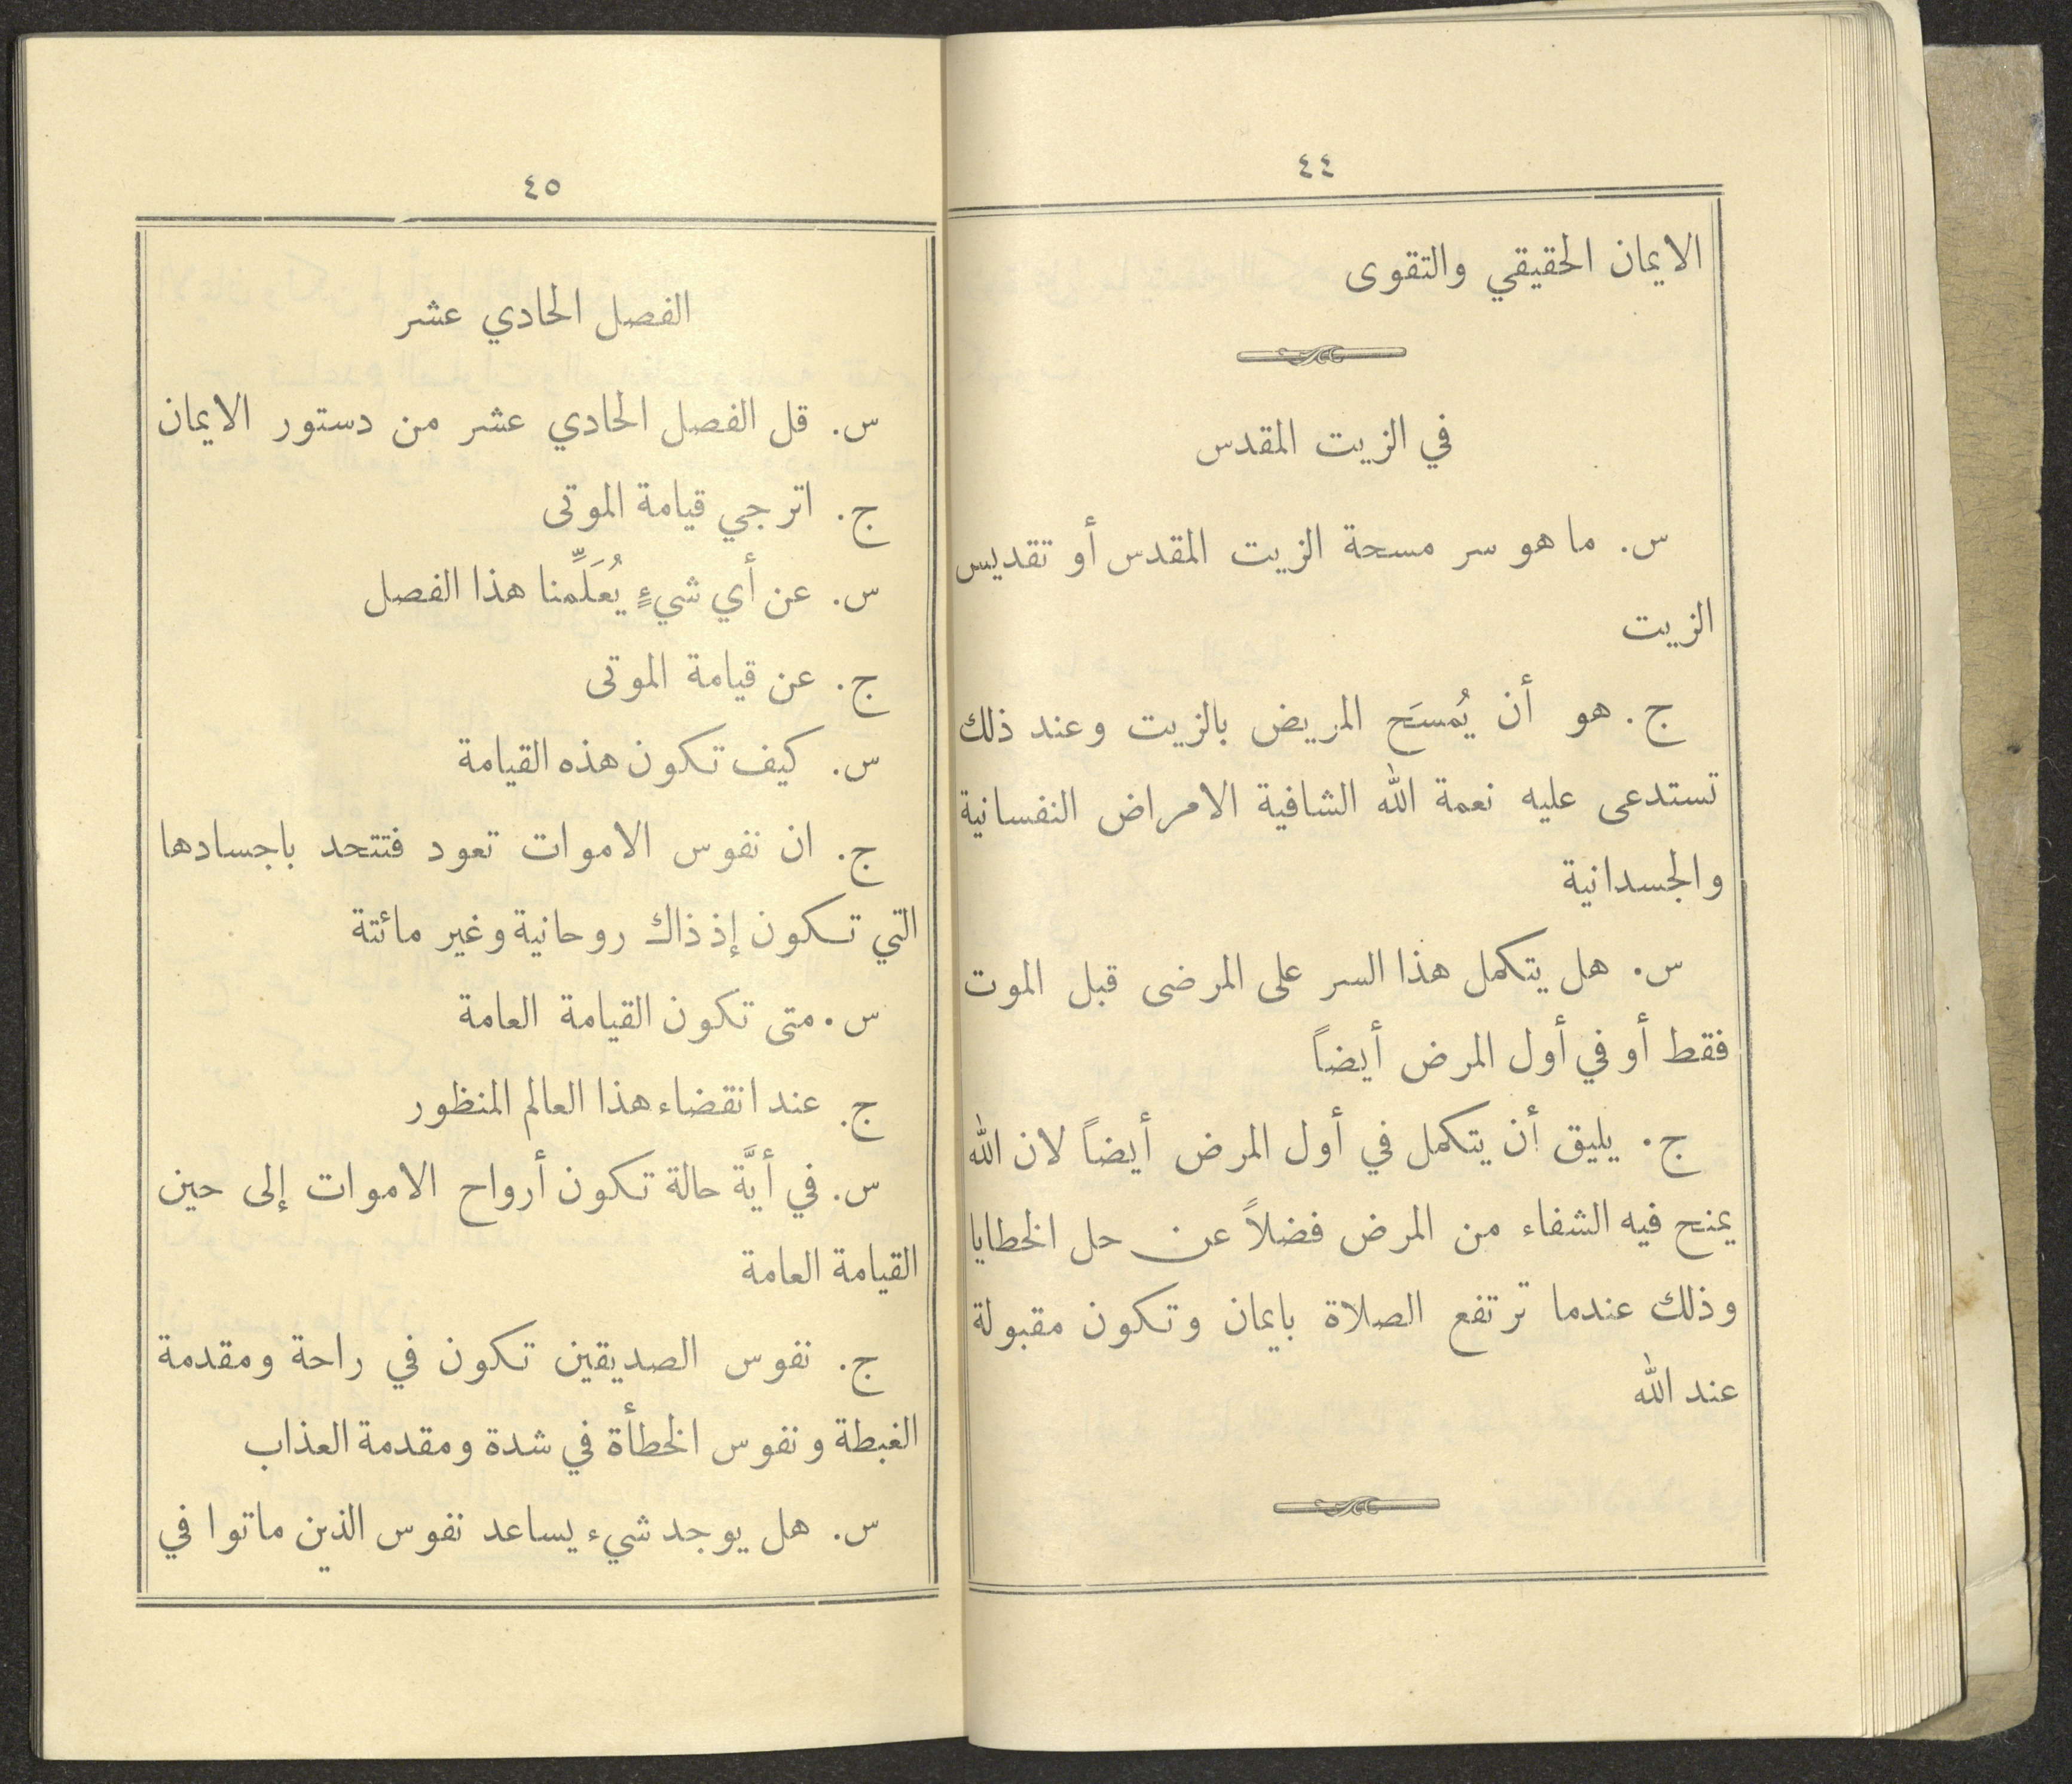 ٤٤
الايمان الحقيقي والتقوى
في الزيت المقدس
س. ما هو سر مسحة الزيت المقدس أو تقديس
الزيت
ج. هو أن يُمسَح المريض بالزيت وعند ذلك
تستدعى عليه نعمة الله الشافية الامراض النفسانية
والجسدانية
س. هل يتكمل هذا السر على المرضى قبل الموت
فقط أو في أول المرض أيضاً
ج. يليق أن يتكمل في أول المرض أيضاً لان الله
يمنح فيه الشفاء من المرض فضلاً عن حل الخطايا
وذلك عندما ترتفع الصلاة بايمان وتكون مقبولة
عند الله
٤٥
الفصل الحادي عشر
س. قل الفصل الحادي عشر من دستور الايمان
ج. اترجي قيامة الموتى
س. عن أي شيءٍ يُعَلِّمنا هذا الفصل
ج. عن قيامة الموتى
س. كيف تكون هذه القيامة
ج. ان نفوس الاموات تعود فتتحد باجسادها
التي تكون إذ ذاك روحانية وغير مائتة
س. متى تكون القيامة العامة
ج. عند انقضاء هذا العالم المنظور
س. في أيَّة حالة تكون أرواح الاموات إلى حين
القيامة العامة
ج. نفوس الصديقين تكون في راحة ومقدمة
الغبطة ونفوس الخطأة في شدة ومقدمة العذاب
س. هل يوجد شيء يساعد نفوس الذين ماتوا في